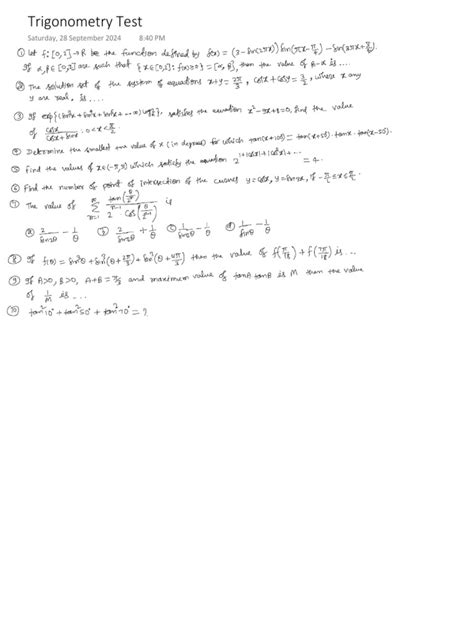 Trigonometry Test
Saturday, 28 September 2024 8:40 PM
① Let f: [0,2] → R be the function defined by f(x) = (3 - sin(2πx)) sin(πx - π/4) - sin(3πx + π/4).
If α, β ∈ [0,2] are such that {x ∈ [0,2] : f(x) ≥ 0} = [α, β], then the value of β - α is ....
② The solution set of the system of equations x + y = 2π/3, cosx + cosy = 3/2, where x any
y are real, is ....
③ If exp{(sin²x + sin⁴x + sin⁶x + ... ∞) log2}, satisfies the equation x² - 9x + 8 = 0, find the value
of cosx/(cosx + sinx), 0 < x < π/2
④ Determine the smallest +ve value of x (in degrees) for which tan(x+100) = tan(x+50). tanx. tan(x-50).
⑤ Find the values of x ∈ (-π, π) which satisfy the equation 2^(1+|cosx|+|cos²x|+...) = 4.
⑥ Find the number of point of intersection of the curves y = cosx, y = sin3x, if -π/2 ≤ x ≤ π/2.
⑦ The value of Σ n=1 ∞ tan(θ/2ⁿ) / (2ⁿ⁻¹ cos(θ/2ⁿ⁻¹)) is
ⓐ 2/sin2θ - 1/θ ⓑ 2/sin2θ + 1/θ ⓒ 1/sin2θ - 1/θ ⓓ 1/sinθ - 1/θ
⑧ If f(θ) = sin³θ + sin³(θ + 2π/3) + sin³(θ + 4π/3) then the value of f(π/18) + f(7π/18) is ...
⑨ If A>0, B>0, A+B = π/3 and maximum value of tanA tanB is M then the value
of 1/M is ...
⑩ tan²10° + tan²50° + tan²70° = ?